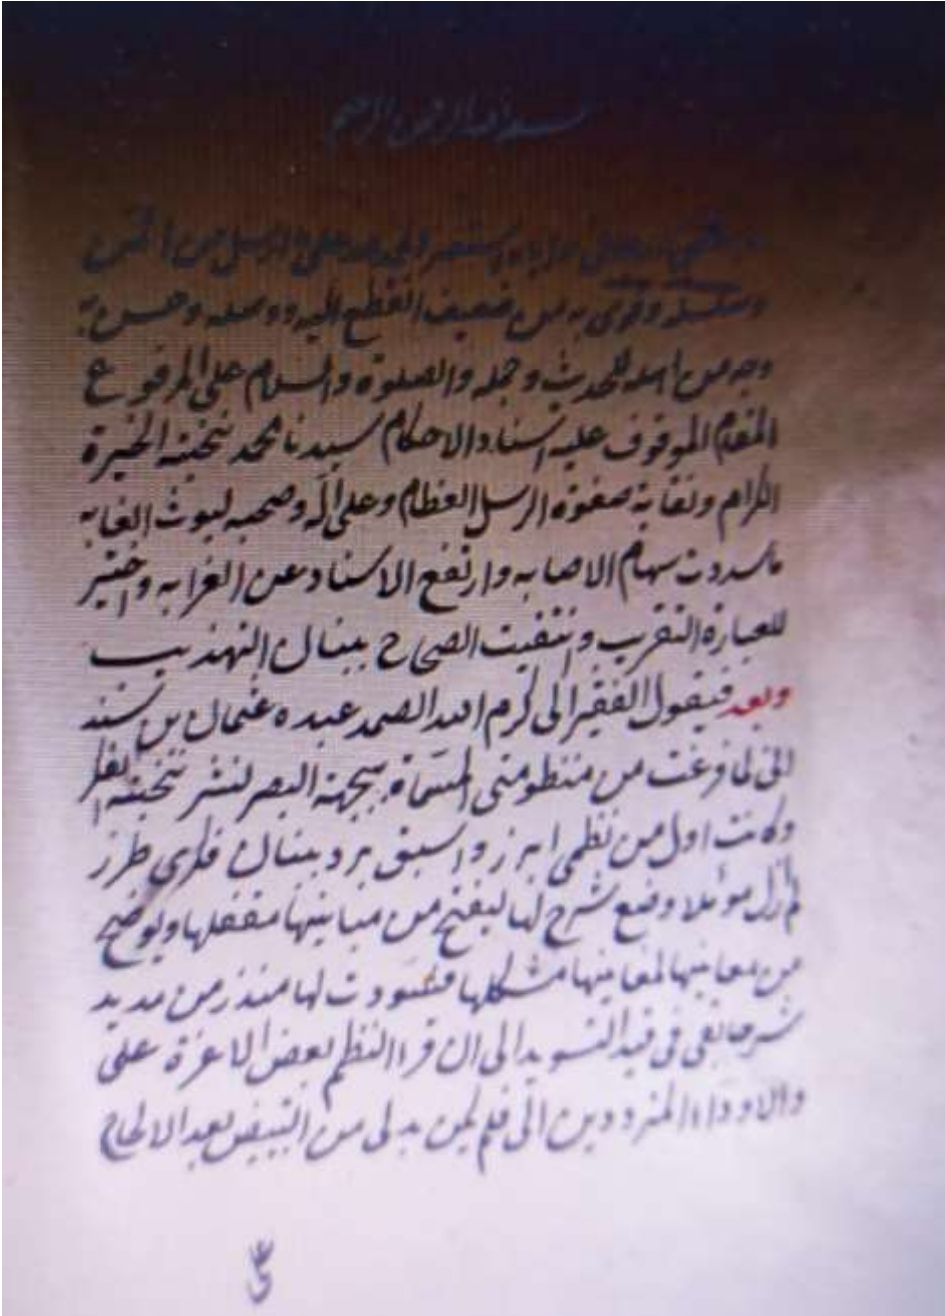 بسم الله الرحمن الرحيم
من
وسلسله وقوى به من ضعيف انقطع اليه ووصله وحسن به
وجه من اهله للحديث وجمله والصلوة والسلام على المرفوع
المقام الموقوف عليه اسناد الاحكام سيدنا محمد نخبة الخيرة
الكرام ونقاية صفوة الرسل العظام وعلى اله وصحبه ليوث الغابه
ما سددت سهام الاصابه وارتفع الاسناد عن الغرابه واختير
للعبارة التقريب وانتقيت الصحاح ببنان التهذيب
وبعد فيقول الفقير الى كرم الله الصمد عبده عثمان بن سند
اني لما فرغت من منظومتي المسماة ببهجة البصر لنثر نخبة الفكر
وكانت اول من نظمي ابرز واسبق برد ببنان فكري طرز
لم ازل مؤملا وضع شرح لها ليفتح من مبانيها مقفلها ويوضح
من معانيها لمعانيها مشكلها فسودت لها منذ زمن مديد
شرحا بقي في قيد التسويد الى ان قرا النظم بعض الاعزة على
والاوداء المترددين الي فلم يكن بد لي من التبييض بعد الالحاح